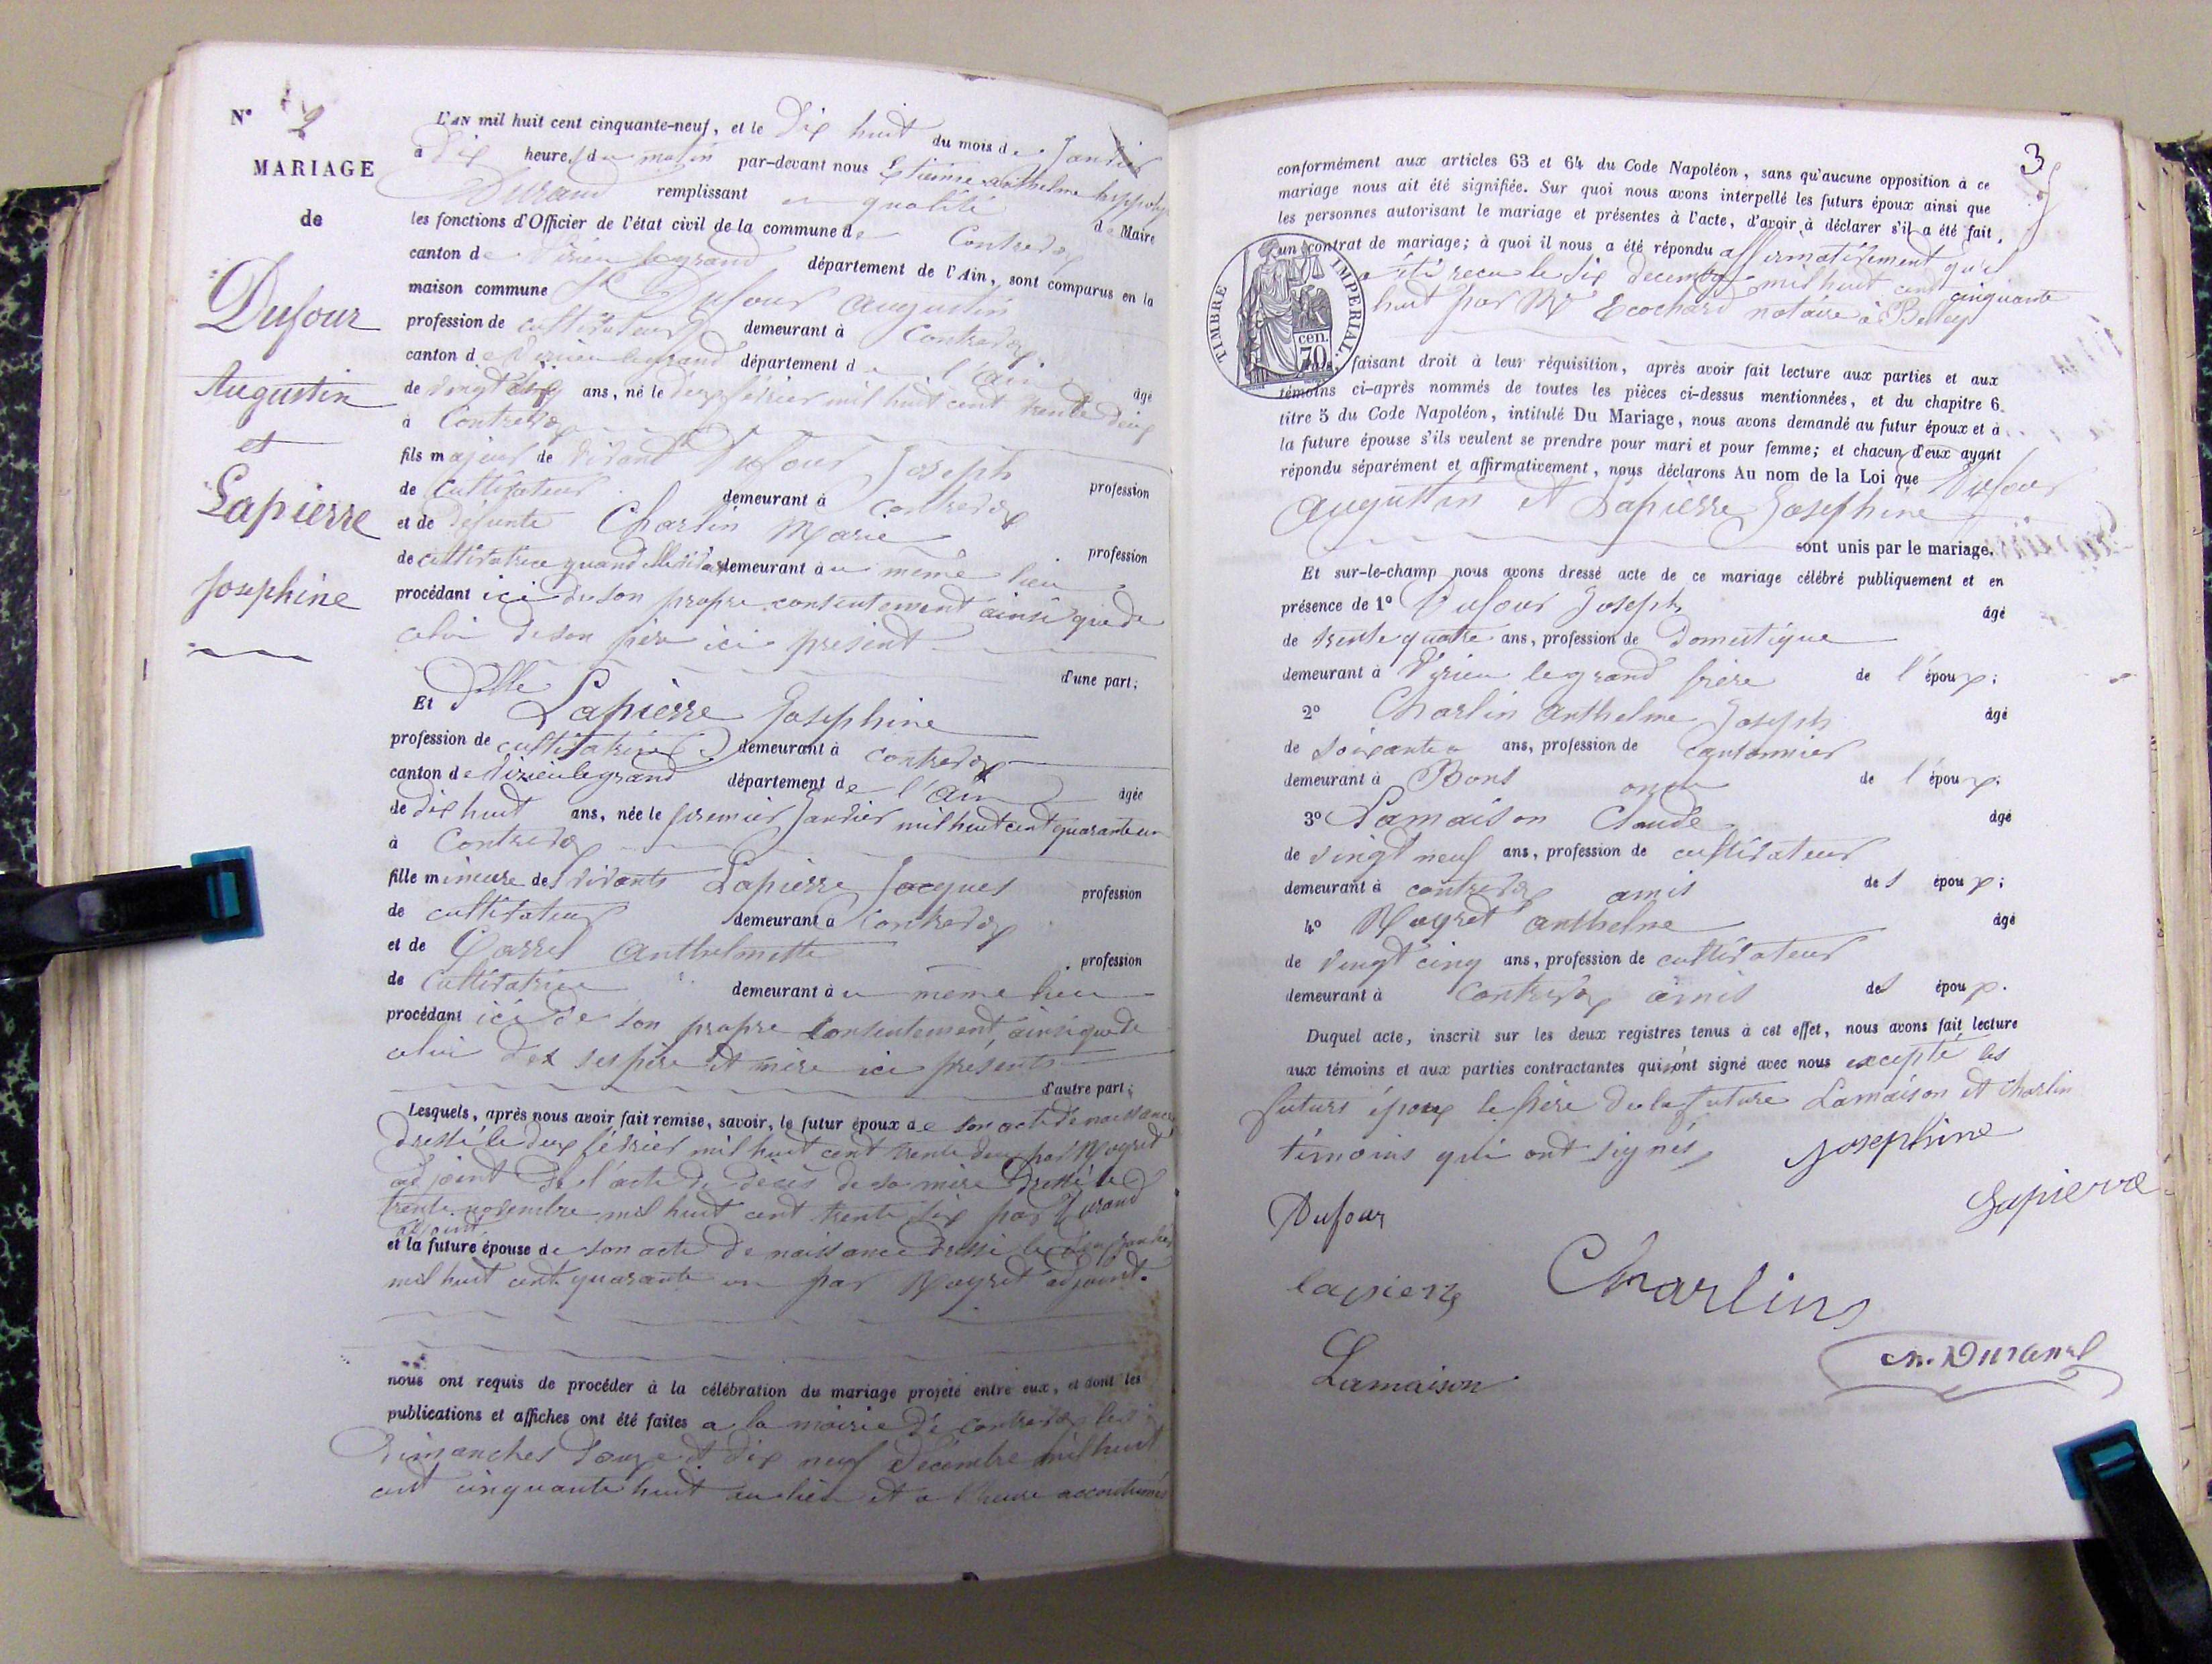 N° 2
MARIAGE
de
Dufour
Augustin
et
Lapierre
Josephine
L'AN mil huit cent cinquante-neuf, et le Dix huit du mois de Janvier
à Dix heures du matin par-devant nous Etienne Anthelme hippolyte
Durand remplissant en qualité de Maire
les fonctions d'Officier de l'état civil de la commune de Contrevoz
canton de Virieu legrand département de l'Ain, sont comparus en la
maison commune Sr Dufour Augustin
profession de cultivateur demeurant à Contrevoz
canton de Virieu legrand département de l'Ain âgé
de vingt six ans, né le deux février mil huit cent trente deux
à Contrevoz
fils majeur de vivant Dufour Joseph profession
de cultivateur demeurant à contrevoz
et de défunte Charlin Marie profession
de cultivatrice quand elle vivait demeurant au même lieu
procédant ici de son propre consentement ainsi que de
celui de son père ici présent
d'une part;
Et Dlle Lapierre Josephine
profession de cultivatrice demeurant à contrevoz
canton de Virieu legrand département de l'ain âgée
de dix huit ans, née le premier Janvier mil huit cent quarante un
à Contrevoz
fille mineure des vivants Lapierre Jacques profession
de cultivateur demeurant à Contrevoz
et de Carrel Anthelmette profession
de Cultivatrice demeurant au même lieu
procédant ici de son propre consentement, ainsi que de
celui de ses père et mère ici présents
d'autre part;
Lesquels, après nous avoir fait remise, savoir, le futur époux de son acte de naissance
dressé le deux février mil huit cent trente deux par Mayret
adjoint de l'acte de décès de sa mère Dressé le
trente novembre mil huit cent trente six par Durand
adjoint
et la future épouse de son acte de naissance dressé le deux janvier
mil huit cent quarante un par Mayret adjoint.
nous ont requis de procéder à la célébration du mariage projeté entre eux, et dont les
publications et affiches ont été faites a la mairie de contrevoz les
Dimanches Douze et dix neuf décembre mil huit
cent cinquante huit au lieu et a l'heure accoutumés
3
conformément aux articles 63 et 64 du Code Napoléon, sans qu'aucune opposition à ce
mariage nous ait été signifiée. Sur quoi nous avons interpellé les futurs époux ainsi que
les personnes autorisant le mariage et présentes à l'acte, d'avoir à déclarer s'il a été fait
un contrat de mariage; à quoi il nous a été répondu affirmativement qu'il
a été reçu le dix décembre mil huit cent cinquante
huit par Me Ecochard notaire à Belley
TIMBRE IMPERIAL.
70 cen.
faisant droit à leur réquisition, après avoir fait lecture aux parties et aux
témoins ci-après nommés de toutes les pièces ci-dessus mentionnées, et du chapitre 6.
titre 5 du Code Napoléon, intitulé Du Mariage, nous avons demandé au futur époux et à
la future épouse s'ils veulent se prendre pour mari et pour femme; et chacun d'eux ayant
répondu séparément et affirmativement, nous déclarons Au nom de la Loi que Dufour
Augustin et Lapierre Josephine
sont unis par le mariage.
Et sur-le-champ nous avons dressé acte de ce mariage célébré publiquement et en
présence de 1° Dufour Joseph âgé
de trente quatre ans, profession de Domestique
demeurant à Virieu legrand frère de l'époux;
2° Charlin Anthelme Joseph âgé
de soixante ans, profession de cantonnier
demeurant à Bons oncle de l'époux;
3° Lamaison Claude âgé
de vingt neuf ans, profession de cultivateur
demeurant à contrevoz amis des époux;
4° Mayret Anthelme âgé
de vingt cinq ans, profession de cultivateur
demeurant à Contrevoz amis des époux.
Duquel acte, inscrit sur les deux registres tenus à cet effet, nous avons fait lecture
aux témoins et aux parties contractantes qui ont signé avec nous excepté les
futurs époux le père de la future Lamaison et Charlin
témoins qui ont signés
Josephine
Lapierre
Dufour
lapierre
Charlin
Lamaison
Durand